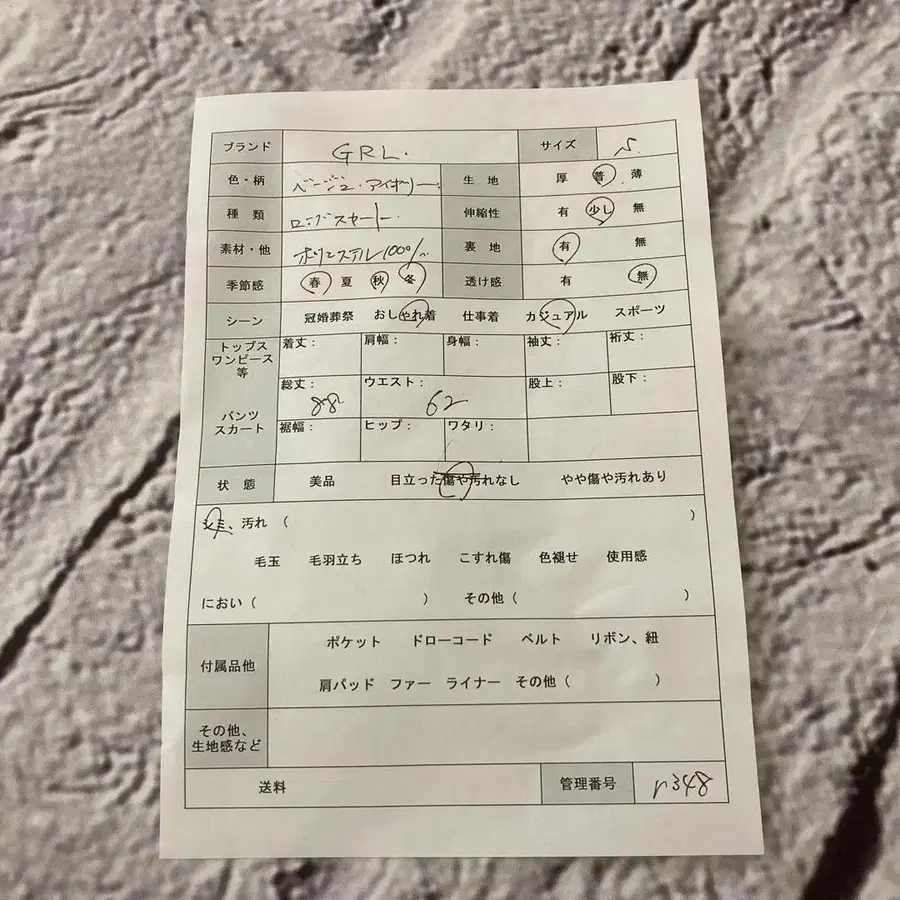 ブランド GRL. サイズ S.
色・柄 ベージュ・アイボリー 生地 厚 普 薄
種類 ロングスカート 伸縮性 有 少し 無
素材・他 ポリエステル100% 裏地 有 無
季節感 春 夏 秋 冬 透け感 有 無
シーン 冠婚葬祭 おしゃれ着 仕事着 カジュアル スポーツ
トップス
ワンピース
等
着丈: 肩幅: 身幅: 袖丈: 裄丈:
パンツ
スカート
総丈: 88 ウエスト: 62 股上: 股下:
裾幅: ヒップ: ワタリ:
状態 美品 目立った傷や汚れなし やや傷や汚れあり
、汚れ ( )
毛玉 毛羽立ち ほつれ こすれ傷 色褪せ 使用感
におい ( ) その他 ( )
付属品他
ポケット ドローコード ベルト リボン、紐
肩パッド ファー ライナー その他 ( )
その他、
生地感など
送料 管理番号 r348